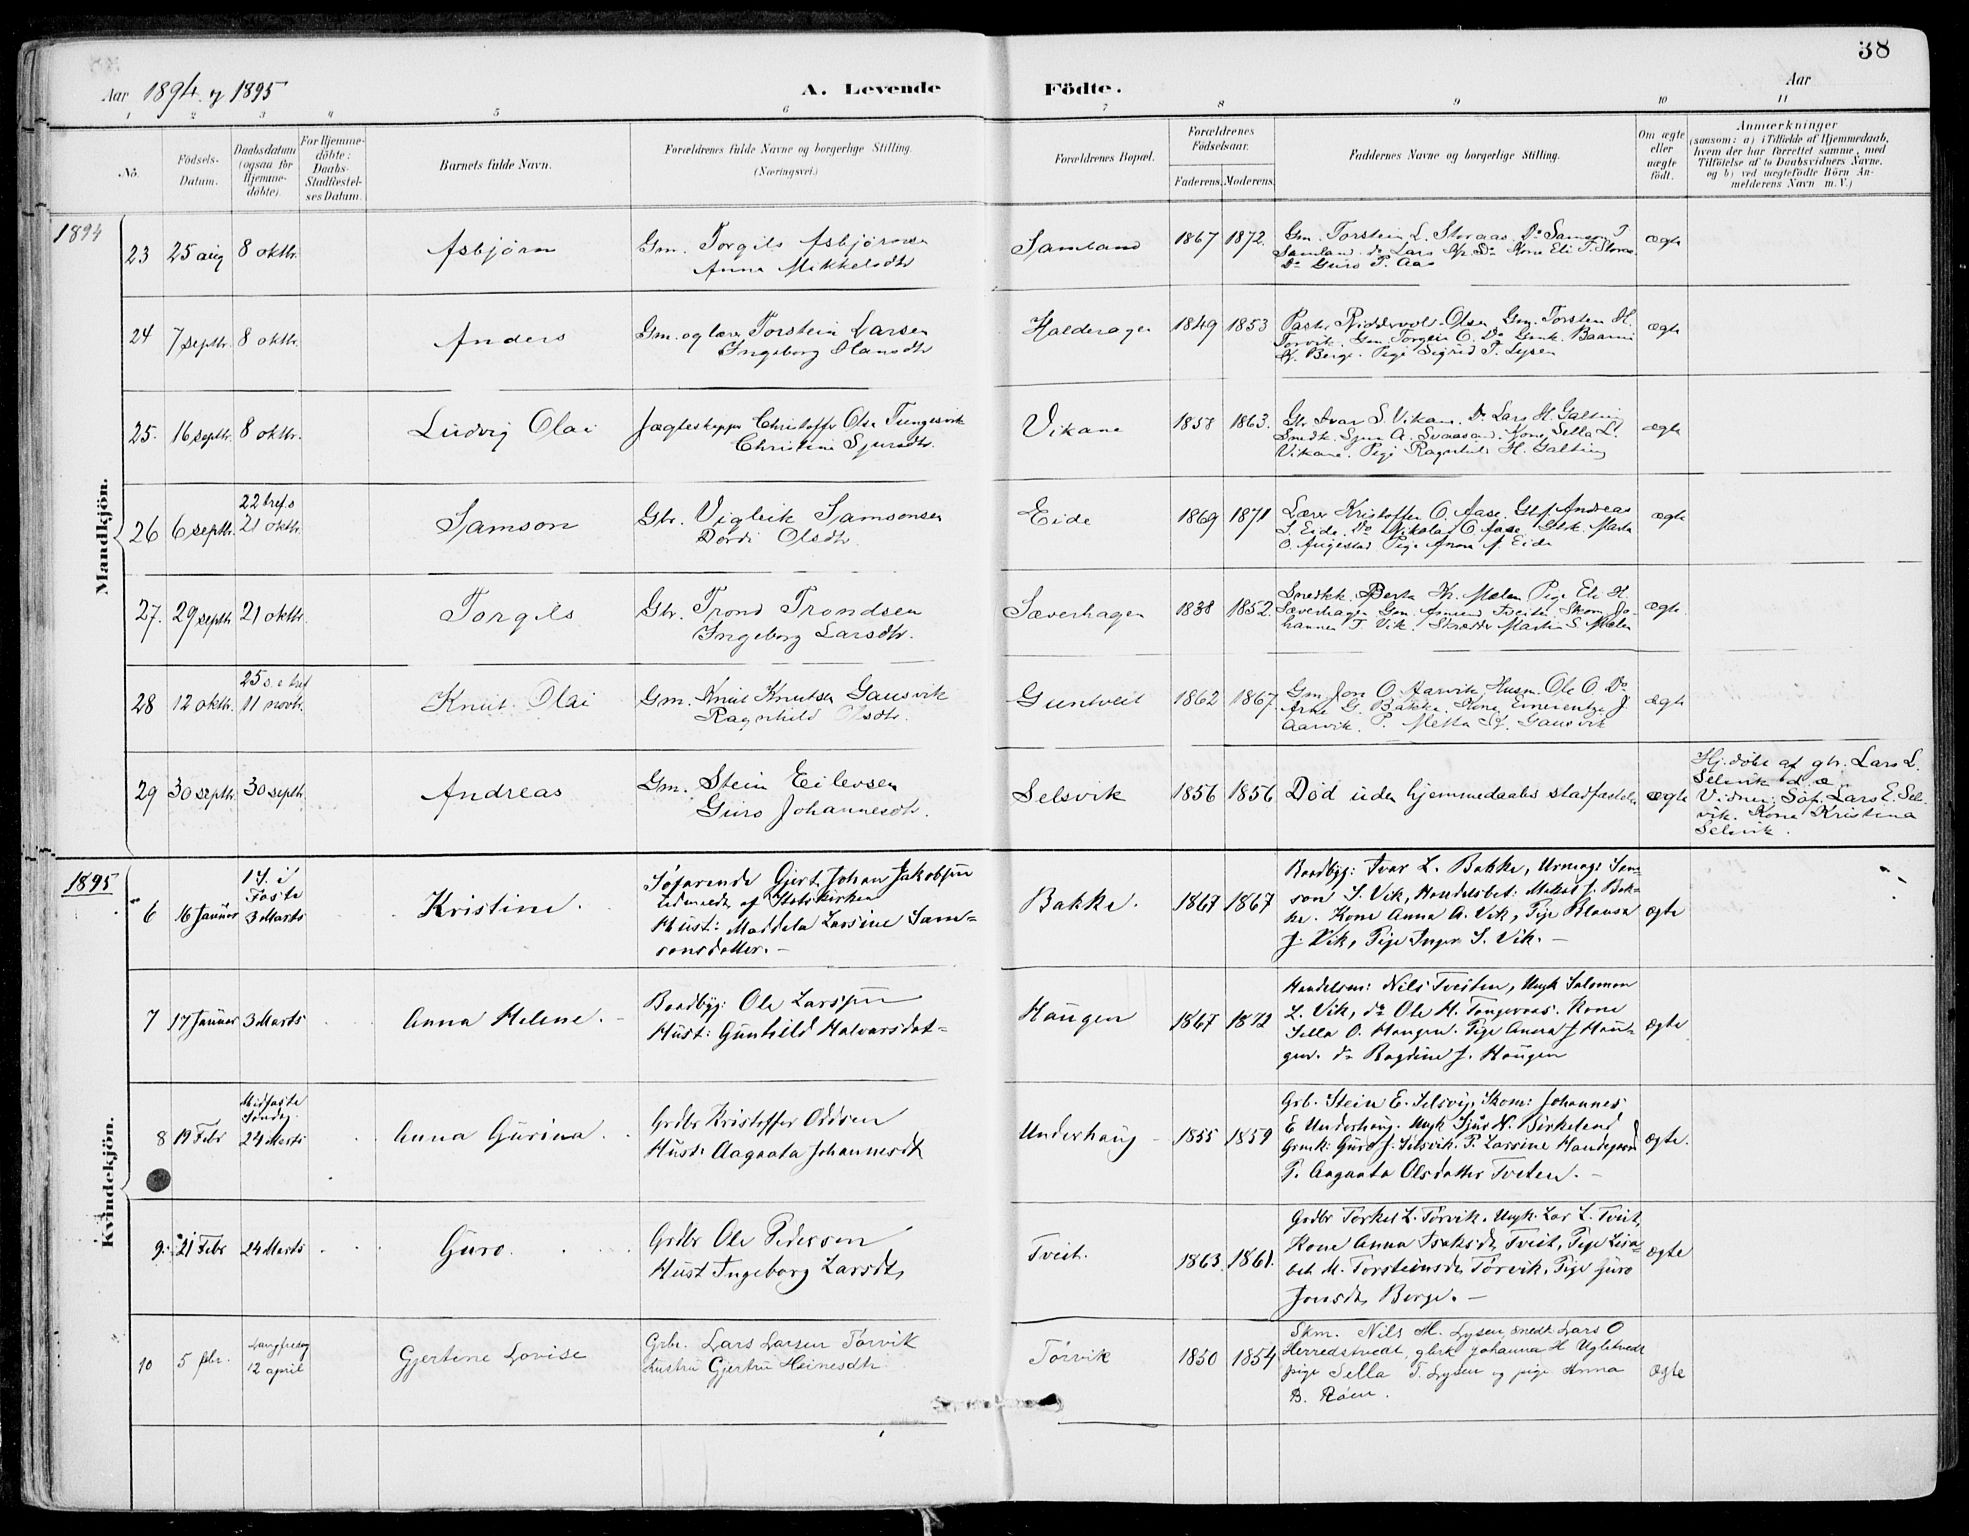 38
Aar 1894 og 1895
A. Levende Födte.
Aar
1 2 3 4 5 6 7 8 9 10 11
No.
Födsels-Datum.
Daabsdatum (ogsaa for Hjemmedöbte).
For Hjemmedöbte: Daabs-Stadfæstelses Datum.
Barnets fulde Navn.
Forældrenes fulde Navne og borgerlige Stilling. (Næringsvei.)
Forældrenes Bopæl.
Forældrenes Födselsaar.
Faderens. Moderens.
Faddernes Navne og borgerlige Stilling.
Om ægte eller uægte födt.
Anmærkninger
(saasom: a) i Tilfælde af Hjemmedaab,
hvem der har forrettet samme, med
Tilföielse af to Daabsvidners Navne.
og b) ved uægtefödte Börn An-
melderens Navn m. V.)
Mandkjön.
1894
23 25 aug 8 oktbr. Asbjörn
Gm. Torgils Asbjörnsen
Anna Mikkelsdtr
Samland 1867 1872.
Gm. Torstein L. Storaas. Do Samson T.
Samland. do Lars Do Kone Eli T. Storaas
Do Guro T. Aas
ægte
24 7 septbr. 8 oktbr. Anders
Gm. og lærer Torstein Larsen
Ingeborg Olansdtr
Halderager 1849 1853
Pastor Riddervold Olsen Gm. Torsten H.
Torvik. Gm. Torgeir O. Do Gmk.
Berge. Pige Sigrid T. Lysen
ægte
25. 16 septbr. 8 oktbr. Ludvig Olai
Jægteskipper Christoffer Olsen Tungesvik
Christine Sjursdtr.
Vikane 1858 1863.
Gbr Ivar S. Vikane. Do Lars H. Galtung
Snedk. Sjur A. Svaasand. Kone Sella L.
Vikane. Pige Ragnhild H. Galtung
ægte
26 6 septbr. 22 s. e. tref. 21 oktbr. Samson
Gbr. Vigleik Samsonsen
Dordi Olsdtr.
Eide 1869 1871
Lærer Kristoffer O. Aase. Andreas
S. Eide. Do Nikolai O. Aase. Gbk. Marta
O. Augestad Pige Anna Eide
ægte
27. 29 septbr 21 oktbr. Torgils
Gbr. Trond Trondsen
Ingeborg Larsdtr.
Sæverhagen 1838 1852.
Snedkk. Berta Mælen Pige Eli H.
Sæverhagen Gm. Asmund Tveiten Skom. Jo-
hannes T. Vik. Skrædder Martin S. Mælen
ægte.
28 12 oktbr. 25 s. e tref 11 novbr. Knut Olai
Gm. Knut Knutsen Gausvik
Ragnhild Olsdtr.
Guntveit 1862 1867.
Gm Jon O. Aarvik. Husm. Ole O. Do
G. Bakke. Kone Emerentze J.
Aarvik. P. Metta Gausvik
ægte
29 30 septbr. 30 septbr. Andreas
Gm. Stein Eilevsen
Guro Johannesdtr.
Selsvik 1856 1856
Död uden hjemmedaabs stadfæstelse
ægte
Hj.döbt af gbr. Lars L.
Selsvik d. æ.
Vidner: Söf. Lars E. Sels-
vik. Kone Kristina
Selsvik.
Kvindekjön.
1895
6 16 Januar 1 S. i Faste 3 Marts Kristine.
Söfarende Gjert Johan Jakobsen
udmeldt af Statskirken
Hust: Maddela Larsine Sam=
sonsdatter. —
Bakke. 1867 1867
Baadbyg: Ivar L. Bakke, Urmag: Sam-
son S. Vik, Handelsbet: Mikkel J. Bak-
ke. Kone Anna A. Vik, Pige Blansa
J. Vik, Pige Inger S. Vik. —
ægte
7 17 Januar 3 Marts Anna Helene.
Baadbyg: Ole Larssen
Hust: Gunhild Halvarsdat=
Haugen 1867 1872
Handelsm: Nils Tveiten, Ungk Salomon
L. Vik, do Ole H. Tangeraas. Kone
Sella O. Haugen. Pige Anna J. Hau-
gen. do Ragdine J. Haugen
ægte
8 19 Febr Midfaste Söndag. 24 Marts Anna Gurina.
Grdbr Kristoffer Oddsen
Hust: Aagaata Johannesdt
Underhaug 1855 1859
Grb. Stein E. Selsvig, Skom: Johannes
E Underhaug. Ungk Sjur N. Birkeland
Grmk: Guro J. Selsvik. P. Larsine
P. Aagaata Olsdatter Tveten. —
ægte.
9. 21 Febr 24 Marts Guro.
Grdbr Ole Pedersen
Hust Ingeborg Larsdt,
Tveit. 1863. 1861.
Grdbr Torkel L. Torvik, Ungk. Lar L. Tveit,
Kone Anna Isaksdt, Tveit, Pige Lisa-
bet M. Torsteinsdt, Törvik, Pige Guro
Jonsdt, Berge. —
ægte
10 5 febr. Langfredag 12 april Gjertine Lovise
Grbr. Lars Larsen Törvik
hustru Gjertru Heinesdtr
Törvik 1850 1854
Skm. Nils M. Lysen, snedk Lars O
Herredstvedt, gbrk Johanna H Ugletvedt
pige Sella T. Lysen og pige Anna
B. Röen.
ægte